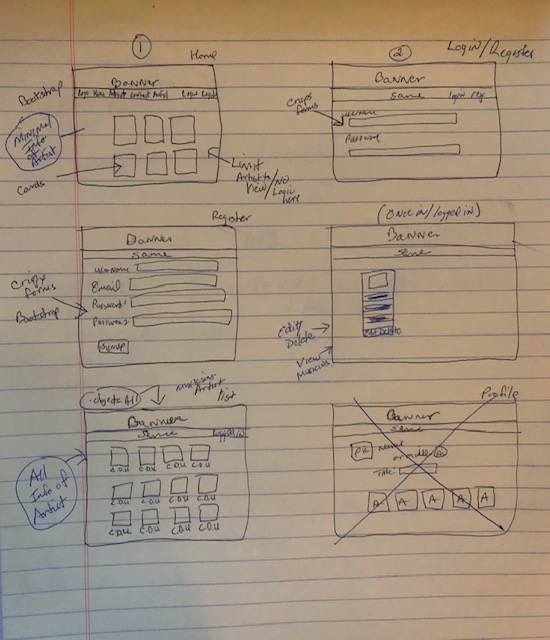 1
Home
Bootstrap
Banner
Logo Home Artist Contact
Login
Minimal
Info
of
Artist
Cards
Limit
Artist to
View/No
Logic
here
2
Login/Register
Banner
Same Login Reg
Crispy
forms
Username
Password
Register
Banner
Same
Crispy
forms
Bootstrap
Username
Email
Password1
Password2
Signup
(Once in/logged in)
Banner
Same
Edit/
Delete
View
Musicians
Edit Delete
.objects All
Artist
list
Banner
Same Logged in
All
Info of
Artist
C.D.U C.D.U C.D.U C.D.U
C.D.U C.D.U C.D.U C.D.U
C.D.U C.D.U C.D.U C.D.U
Profile
Banner
Same
PR
Name
or
Title:
A A A A A